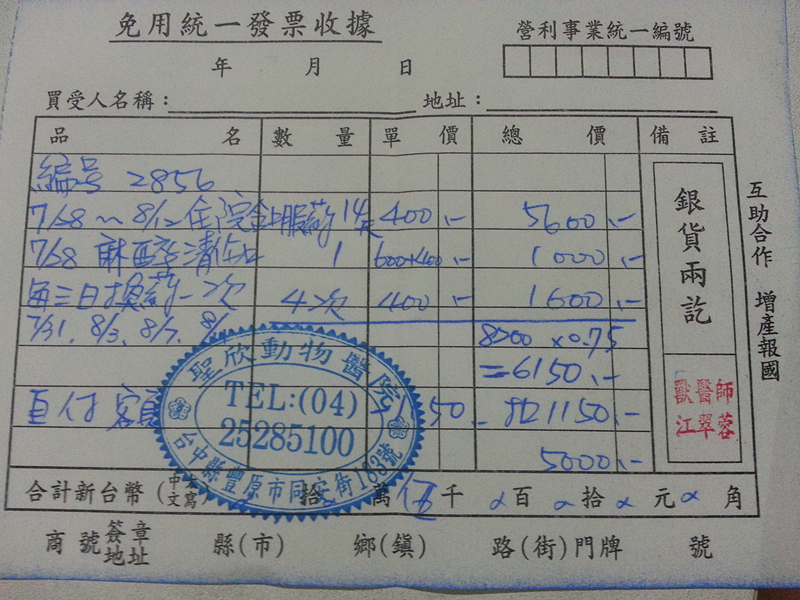 免用統一發票收據
營利事業統一編號
年 月 日
買受人名稱： 地址：
品名 數量 單價 總價 備註
編号 2856
7/28～8/12住院含口服葯 14天 400.- 5600.-
7/28 麻醉清 1 600+400.- 1000.-
每三日換葯一次 4次 400.- 1600.-
7/31. 8/3. 8/7. 8/
8200 x0.75
=6150.-
自付 客 1150.- 1150.-
5000.-
銀貨兩訖
獸醫師
江翠蓉
互助合作 增產報國
聖欣動物醫院
TEL:(04)
25285100
台中縣豐原市同安街183號
合計新台幣（中文大寫） 拾 萬 伍 千 百 拾 元 角
商號簽章地址 縣(市) 鄉(鎮) 路(街)門牌 號